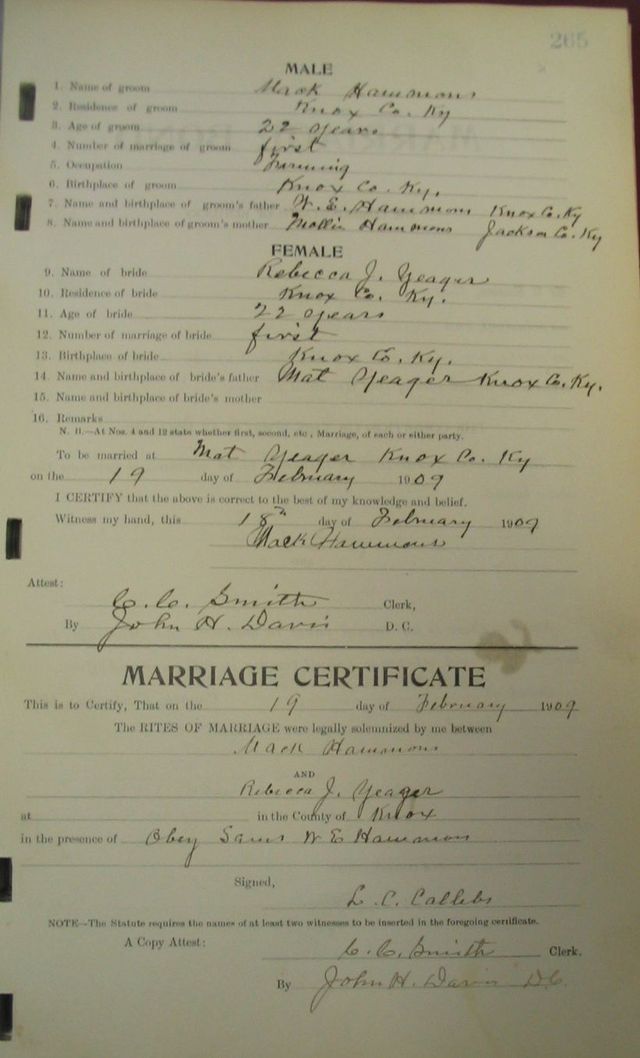 265
MALE
1. Name of groom Mack Hammons
2. Residence of groom Knox Co. Ky
3. Age of groom 22 years
4. Number of marriage of groom first
5. Occupation Farming
6. Birthplace of groom Knox Co. Ky.
7. Name and birthplace of groom's father W. E. Hammons Knox Co. Ky
8. Name and birthplace of groom's mother Mollie Hammons Jackson Co. Ky
FEMALE
9. Name of bride Rebecca J. Yeager
10. Residence of bride Knox Co. Ky.
11. Age of bride 22 years
12. Number of marriage of bride first
13. Birthplace of bride Knox Co. Ky.
14. Name and birthplace of bride's father Mat Yeager Knox Co. Ky.
15. Name and birthplace of bride's mother
16. Remarks
N. B.—At Nos. 4 and 12 state whether first, second, etc., Marriage, of each or either party.
To be married at Mat Yeager Knox Co. Ky
on the 19 day of February 1909
I CERTIFY that the above is correct to the best of my knowledge and belief.
Witness my hand, this 18th day of February 1909
Mack Hammons
Attest:
C. C. Smith Clerk,
By John H. Davis D. C.
MARRIAGE CERTIFICATE
This is to Certify, That on the 19 day of February 1909
The RITES OF MARRIAGE were legally solemnized by me between
Mack Hammons
AND
Rebecca J. Yeager
at in the County of Knox
in the presence of Obey Sams W E Hammon
Signed,
L. C. Callebs
NOTE—The Statute requires the names of at least two witnesses to be inserted in the foregoing certificate.
A Copy Attest:
C. C. Smith Clerk.
By John H. Davis DC